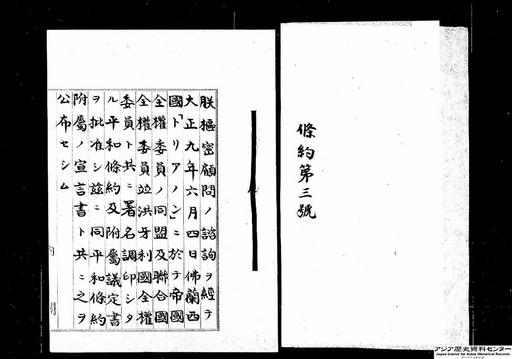 條約第三號
朕樞密顧問ノ諮詢ヲ經テ
大正九年六月四日佛蘭西
國「トリアノン」ニ於テ帝國
全權委員ノ同盟及聯合國
全權委員竝洪牙利國全權
委員ト共ニ署名調印シタ
ル平和條約及附屬議定書
ヲ批准シ茲ニ同平和條約
附屬ノ宣言書ト共ニ之ヲ
公布セシム
アジア歴史資料センター
Japan Center for Asian Historical Records